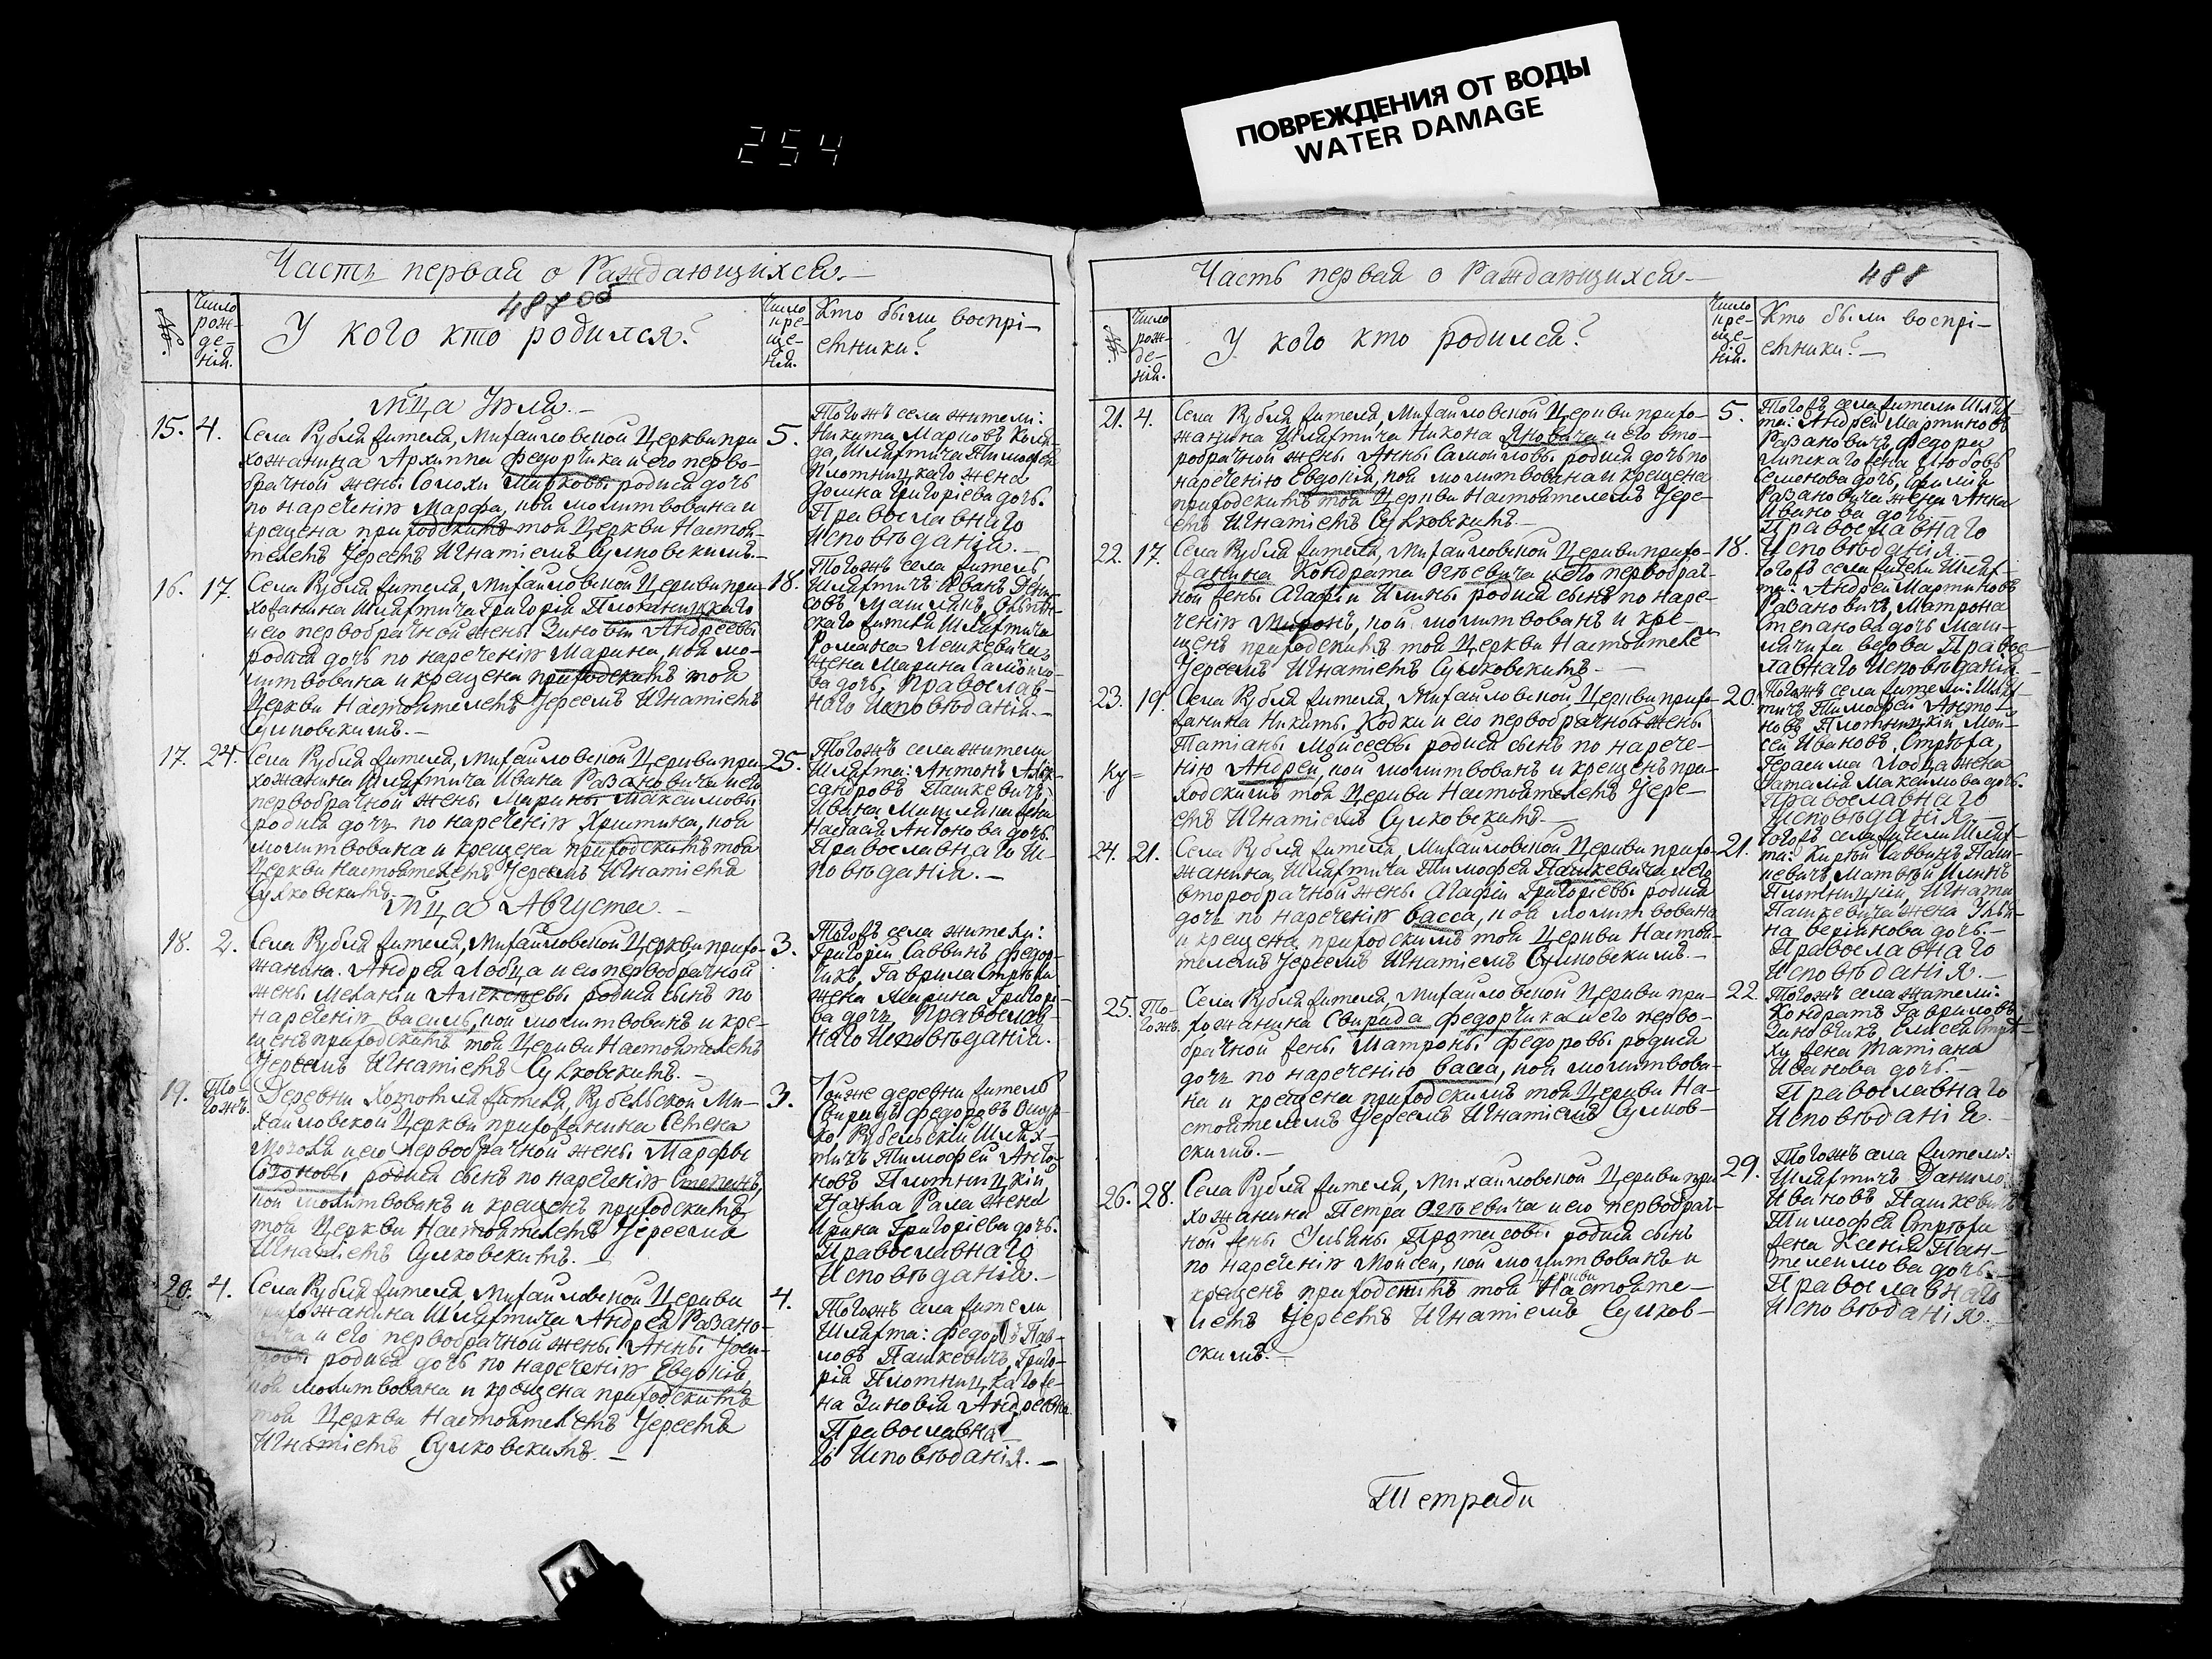 ПОВРЕЖДЕНИЯ ОТ ВОДЫ
WATER DAMAGE
254
Часть первая о Раждающихся.–
487 об
№
Число рож-де-нія.
У кого кто родился?
Число кре-ще-нія.
Кто были воспрі-
емники?
мца Іюля.–
15. 4.
Села Рубля жителя, Михайловской Церкви при
хожанина Архиппа Федорчика и его перво-
брачной жены Соломіи Марковы родися дочь
по нареченію Марфа, коя молитвована и
крещена приходскимъ той Церкви Настоя-
телемъ Іереемъ Игнатіемъ Сулковскимъ.–
5.
Тогожъ села жители:
Никита Марковъ
да, Шляхтича Тимофея
Плотницкаго жена
Домна Григоріева дочь.
Православнаго
Исповѣданія.–
16. 17.
Села Рубля жителя, Михайловской Церкви при-
хожанина Шляхтича Григорія Плотницкаго
и его первобрачной жены Зиновіи Андреевы
родися дочь по нареченію Марина, коя мо-
литвована и крещена приходскимъ той
Церкви Настоятелемъ Іереемъ Игнатіемъ
Сулковскимъ.–
18.
Тогожъ села житель
Шляхтичъ Иванъ Дени-
совъ Машлякъ,
скаго жителя Шляхтича
Романа Пешкевича
жена Марина Самойло-
ва дочь, Православ-
наго Исповѣданія.–
17. 24.
Села Рубля жителя, Михайловской Церкви при-
хожанина Шляхтича Ивана Разановича и его
первобрачной жены Марины Максимовы
родися дочь по нареченію Христина, коя
молитвована и крещена приходскимъ той
Церкви Настоятелемъ Іереемъ Игнатіемъ
Сулковскимъ.–
25.
Тогожъ села жители
Шляхта: Антонъ Алек-
сандровъ Пашкевичъ,
Ивана Машляка жена
Настасія Антонова дочь.
Православнаго Ис-
повѣданія.–
мца Августа.–
18. 2.
Села Рубля жителя, Михайловской Церкви прихо-
жанина Андрея Лобца и его первобрачной
жены Меланіи Алексѣевы родися сынъ по
нареченію Василь, кой молитвованъ и кре-
щенъ приходскимъ той Церкви Настоятелемъ
Іереемъ Игнатіемъ Сулковскимъ.–
3.
Тогожъ села жители:
Григорій Саввинъ Федор-
чикъ, Гаврила Стрѣхи
жена Марина Григорі-
ва дочь. Православ-
наго Исповѣданія.
19. То гожъ.
Деревни Хотомля жителя, Рубельской Ми-
хайловской Церкви прихожанина Семена
и его первобрачной жены Марфы
родися сынъ по нареченію Степанъ,
кой молитвованъ и крещенъ приходскимъ
той Церкви Настоятелемъ Іереемъ
Игнатіемъ Сулковскимъ.–
3.
Тойже деревни житель
Свиридъ Федоровъ
ко Рубельскій Шлях-
тичъ Тимофей Анто-
новъ Плотницкій,
жена
Ирина Григоріева дочь.
Православнаго
Исповѣданія.–
20. 4.
Села Рубля жителя, Михайловской Церкви
прихожанина Шляхтича Андрея Разано-
вича и его первобрачной жены Анны
родися дочь по нареченію Евдокія,
коя молитвована и крещена приходскимъ
той Церкви Настоятелемъ Іереемъ
Игнатіемъ Сулковскимъ.–
4.
Тогожъ села жители
Шляхта: Федоръ Пав-
ловъ Пашкевичъ, Григо-
рія Плотницкаго же-
на Зиновія Андреевна
Православна-
го Исповѣданія.–
Часть первая о Раждающихся.–
488
№
Число рож-де-нія.
У кого кто родился?
Число кре-ще-нія.
Кто были воспрі-
емники?–
21. 4.
Села Рубля жителя, Михайловской Церкви прихо-
жанина Шляхтича Никона Яновича и его вто-
робрачной жены Анны Самойловы родися дочь по
нареченію Евдокія, коя молитвована и крещена
приходскимъ той Церкви Настоятелемъ Іере-
емъ Игнатіемъ Сулковскимъ.–
5.
Тогожъ села жители Шлях-
та: Андрей Мартиновъ
Разановичъ, Федора
жена Любовь
Семенова дочь,
Разановича жена Анна
Иванова дочь.–
Православнаго
Исповѣданія.–
22. 17.
Села Рубля жителя, Михайловской Церкви прихо-
жанина Кондрата Огѣевича и его первобрач-
ной жены Агафіи Ильины родися сынъ по наре-
ченію Миронъ, кой молитвованъ и кре-
щенъ приходскимъ той Церкви Настоятелемъ
Іереемъ Игнатіемъ Сулковскимъ.–
18.
Тогожъ села жители Шлях-
та: Андрей Мартиновъ
Разановичъ, Матрона
Степанова дочь Маш-
лячиха вдова Правос-
лавнаго Исповѣданія.–
23. 19.
Села Рубля жителя, Михайловской Церкви прихо-
жанина Никиты Кодки и его первобрачной жены
Татіаны Мойсеевы родися сынъ по нарече-
нію Андрей, кой молитвованъ и крещенъ при-
ходскимъ той Церкви Настоятелемъ Іере-
емъ Игнатіемъ Сулковскимъ.–
Ку=
20.
Тогожъ села жители: Шлях-
тичъ Тимофей Анто-
новъ Плотницкій, Мой-
сей Ивановъ Стрѣха,
Герасима Лобца жена
Наталія Максимова дочь.
Православнаго
Исповѣданія.–
24. 21.
Села Рубля жителя, Михайловской Церкви прихо-
жанина, Шляхтича Тимофея Пашкевича и его
второбрачной жены Агафіи Григоріевы родися
дочь по нареченію Васса, коя молитвована
и крещена приходскимъ той Церкви Настоя-
телемъ Іереемъ Игнатіемъ Сулковскимъ.–
21.
Тогожъ села жители Шлях-
та: Кирѣй Саввинъ Паш-
кевичъ Матвѣй Ильинъ
Плотницкій, Игната
Пашкевича жена Улья-
на дочь.–
Православнаго
Исповѣданія.–
25. То-гожъ.
Села Рубля жителя, Михайловской Церкви при-
хожанина Свирида Федорчика и его перво-
брачной жены Матроны Федоровы родися
дочь по нареченію Васса, коя молитвова-
на и крещена приходскимъ той Церкви На-
стоятелемъ Іереемъ Игнатіемъ Сулков-
скимъ.–
22
Тогожъ села жители:
Кондратъ Гавриловъ
Зиновчикъ, Елисея Стрѣ-
хи жена Татіана
Иванова дочь.–
Православнаго
Исповѣданія.–
26. 28.
Села Рубля жителя, Михайловской Церкви при
хожанина Петра Огѣевича и его первобрач-
ной жены Ульяны Протасовы родися сынъ
по нареченію Мойсей, кой молитвованъ и
крещенъ приходскимъ той Церкви Настояте-
лемъ Іереемъ Игнатіемъ Сулков-
скимъ.–
29.
Тогожъ села жители:
Шляхтичъ Данило
Ивановъ Пашкевичъ
Тимофея Стрѣхи
жена Ксенія Пан-
телеимова дочь.–
Православнаго
Исповѣданія.–
Тетради